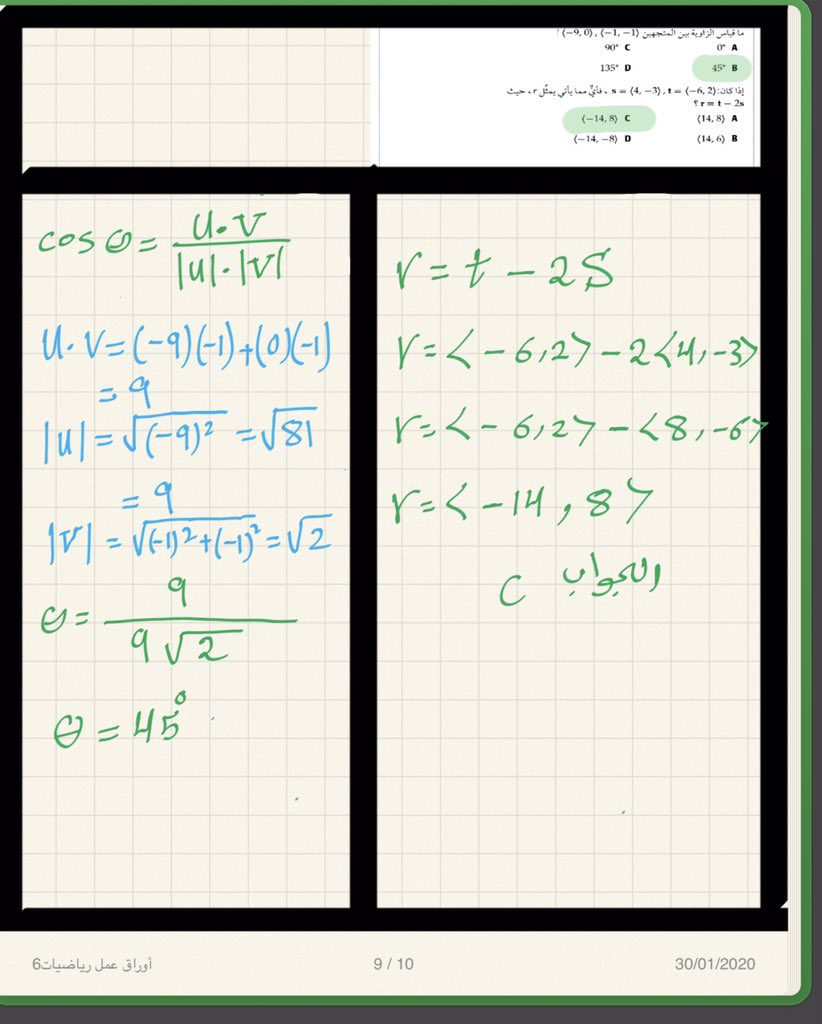 ما قياس الزاوية بين المتجهين ⟨−1, −1⟩ , ⟨−9, 0⟩ ؟
0° A
90° C
45° B
135° D
إذا كان: s = ⟨4, −3⟩ , t = ⟨−6, 2⟩ ، فأيٌّ مما يأتي يمثّل r، حيث
r = t − 2s ؟
⟨14, 8⟩ A
⟨−14, 8⟩ C
⟨14, 6⟩ B
⟨−14, −8⟩ D
cos θ = u·v / |u|·|v|
u·v=(-9)(-1)+(0)(-1)
= 9
|u| = √(-9)² = √81
= 9
|v| = √(-1)²+(-1)² = √2
θ = 9 / 9√2
θ = 45°
r = t - 2S
r = < -6,2> - 2<4,-3>
r = < -6,2> - <8,-6>
r = < -14, 8>
الجواب C
أوراق عمل رياضيات6
9 / 10
30/01/2020